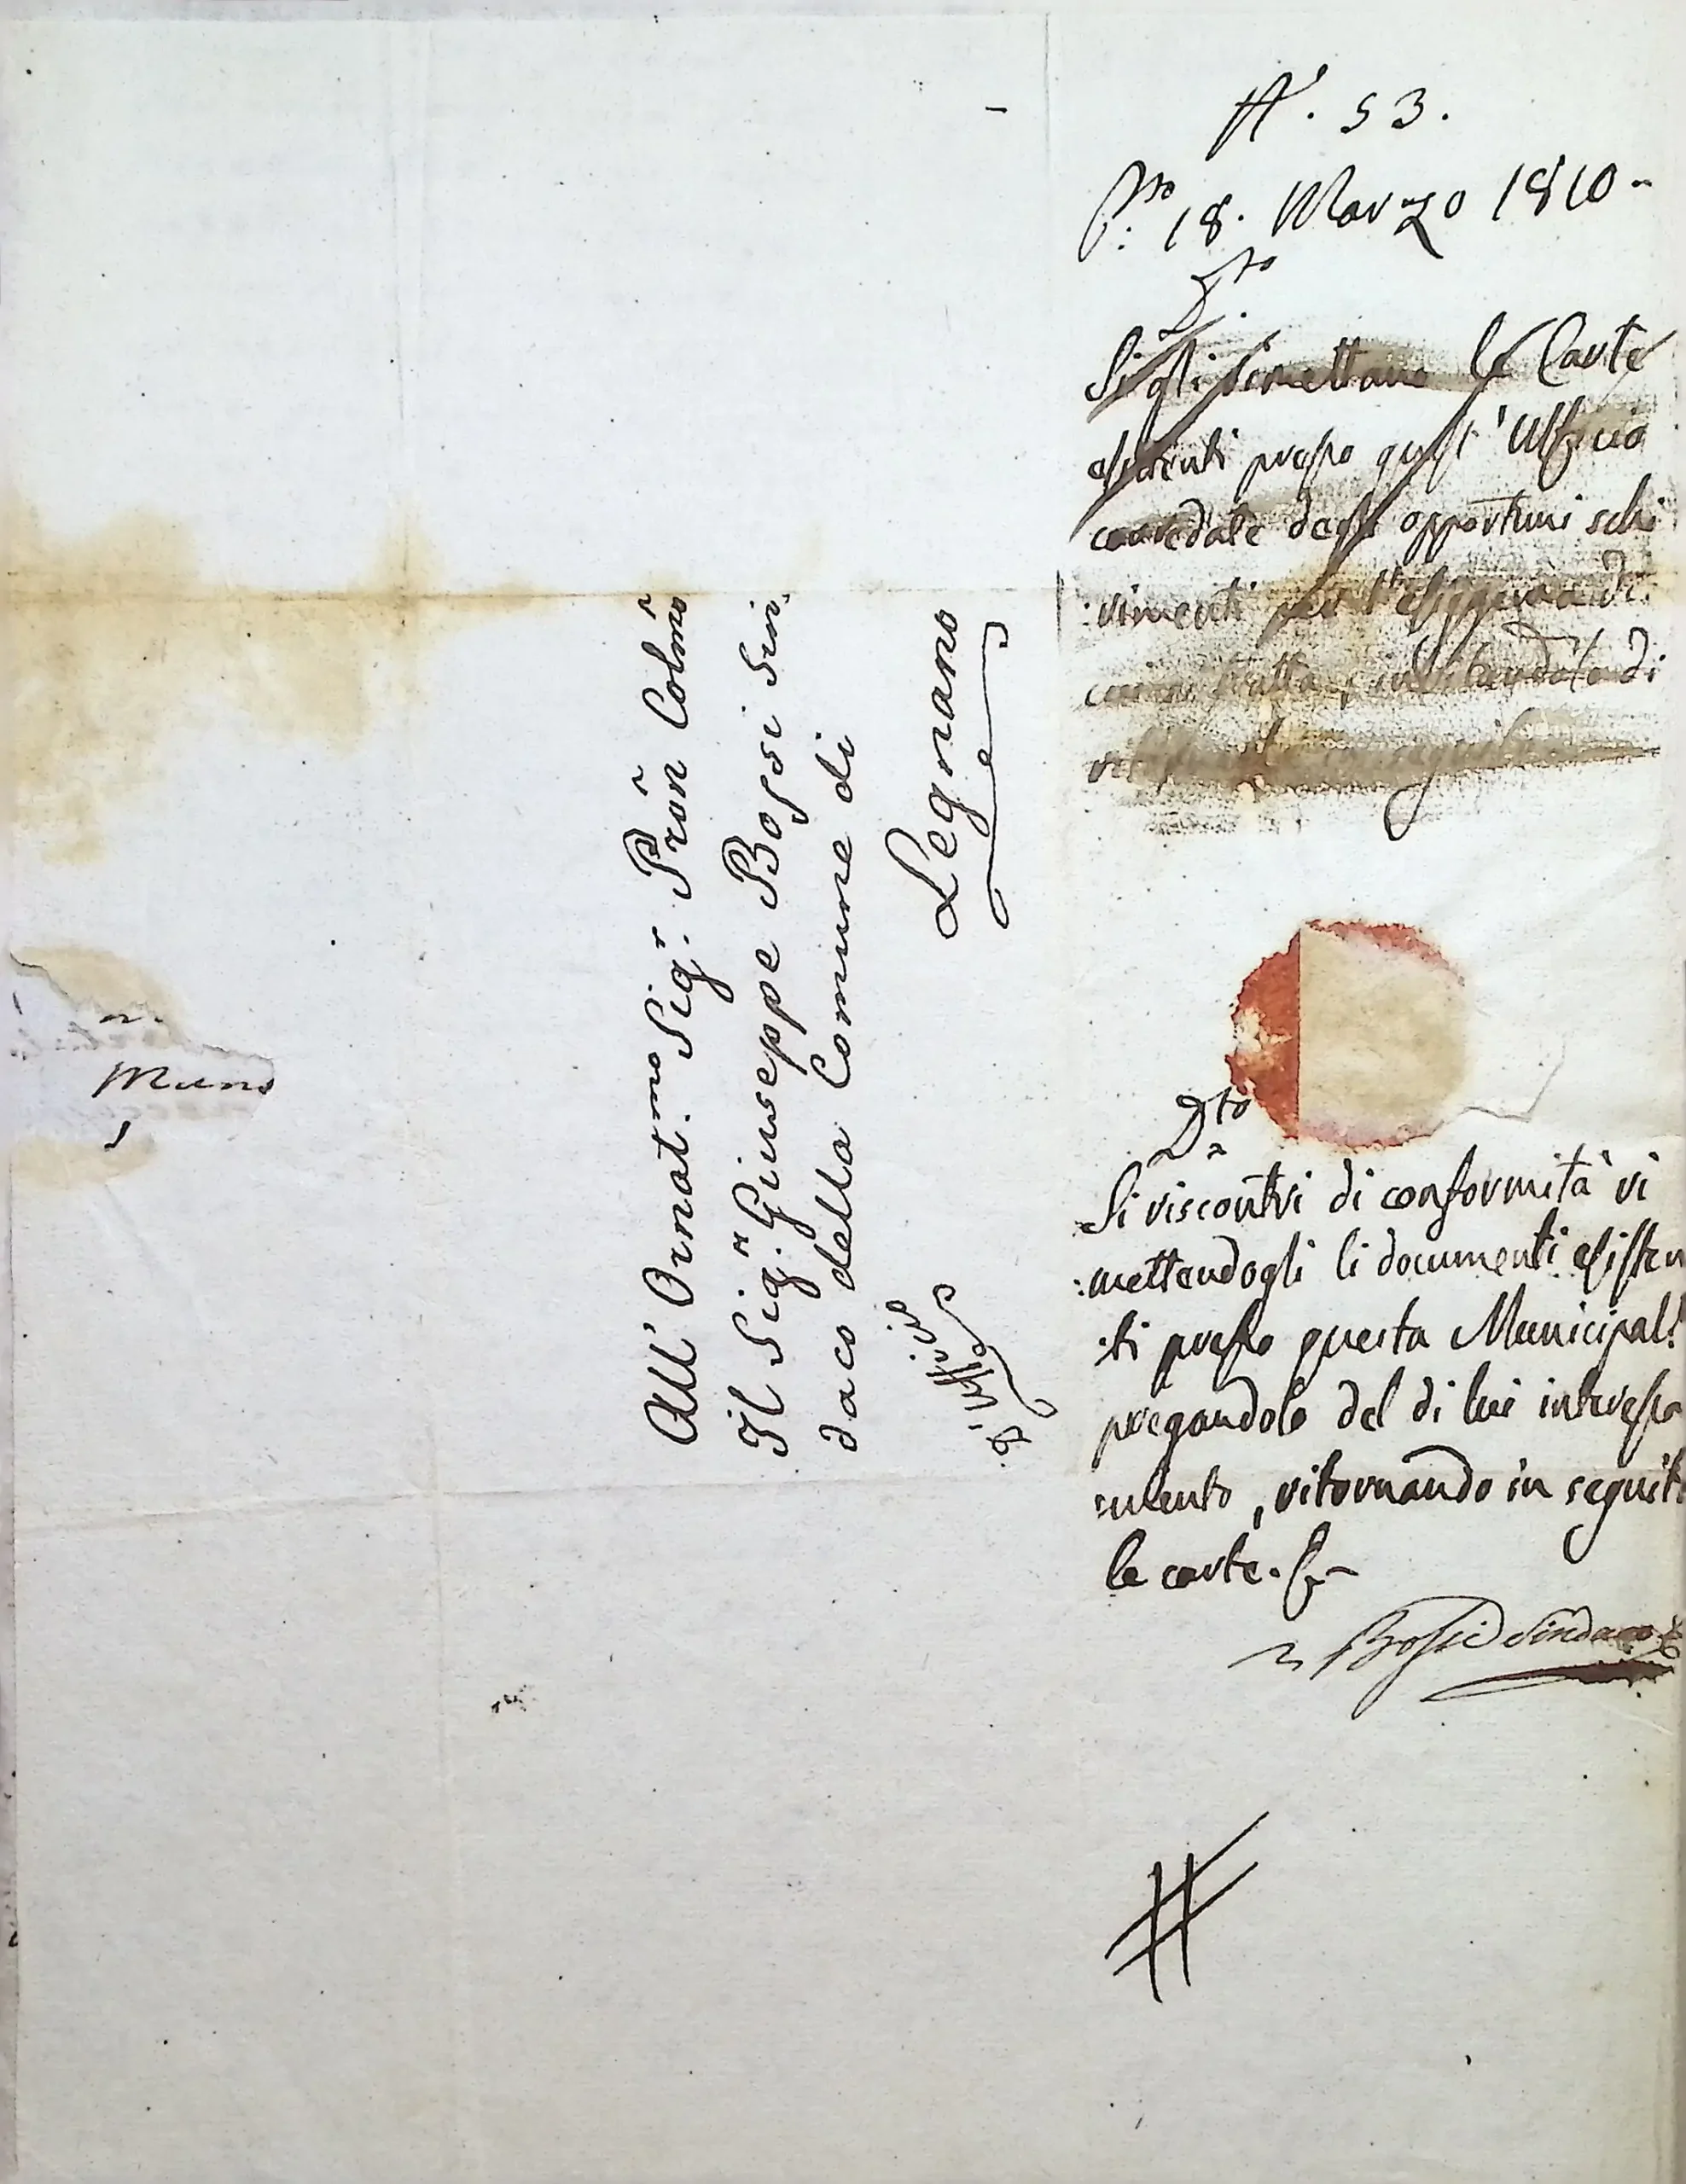 N.° 53.
P.to 18. Marzo 1810 -
D.to
Si gli rimettano le Carte
esistenti presso quest' Ufficio
corredate degli opportuni schi
:rimenti per
di
Dto
Si riscontri di conformità ri
:mettendogli li documenti esisten
:ti presso questa Municipal.
pregandolo del di lui interessa
:mento, ritornando in seguito
le carte.
Bossi Sindaco
All' Ornat.mo Sig.r Prōn Colmō
Il Sig.r Giuseppe Bossi Sin
daco della Comune di
Legnano
D'Ufficio
Muni